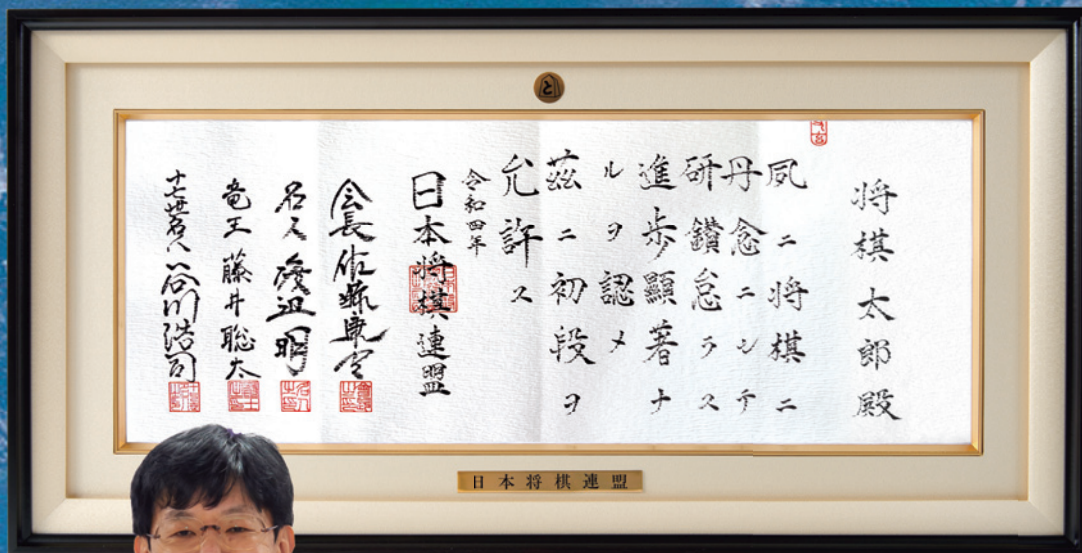 将棋太郎殿
夙ニ将棋ニ
丹念ニシテ
研鑽怠ラス
進歩顯著ナ
ルヲ認メ
茲ニ初段ヲ
允許ス
令和四年
日本将棋連盟
会長佐藤康光
名人渡辺明
竜王藤井聡太
十七世名人谷川浩司
日本将棋連盟